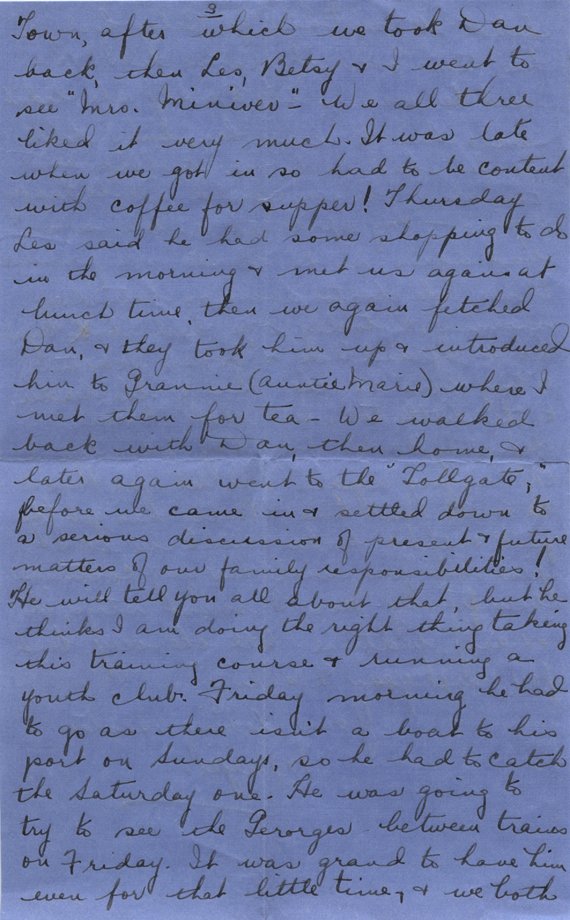 3
Town, after which we took Dan
back, then Les, Betsy & I went to
see "Mrs. Miniver" - We all three
liked it very much. It was late
when we got in so had to be content
with coffee for supper! Thursday
Les said he had some shopping to do
in the morning & met us again at
lunch time, then we again fetched
Dan, & they took him up & introduced
him to Grannie (Auntie Marie) where I
met them for tea - We walked
back with Dan, then home, &
later again went to the "Tollgate",
before we came in & settled down to
a serious discussion of present & future
matters of our family responsibilities!
He will tell you all about that, but he
thinks I am doing the right thing taking
this training course & running a
youth club. Friday morning he had
to go as there isn't a boat to his
port on Sundays, so he had to catch
the Saturday one. He was going to
try to see the Gerorges between trains
on Friday. It was grand to have him
even for that little time, & we both